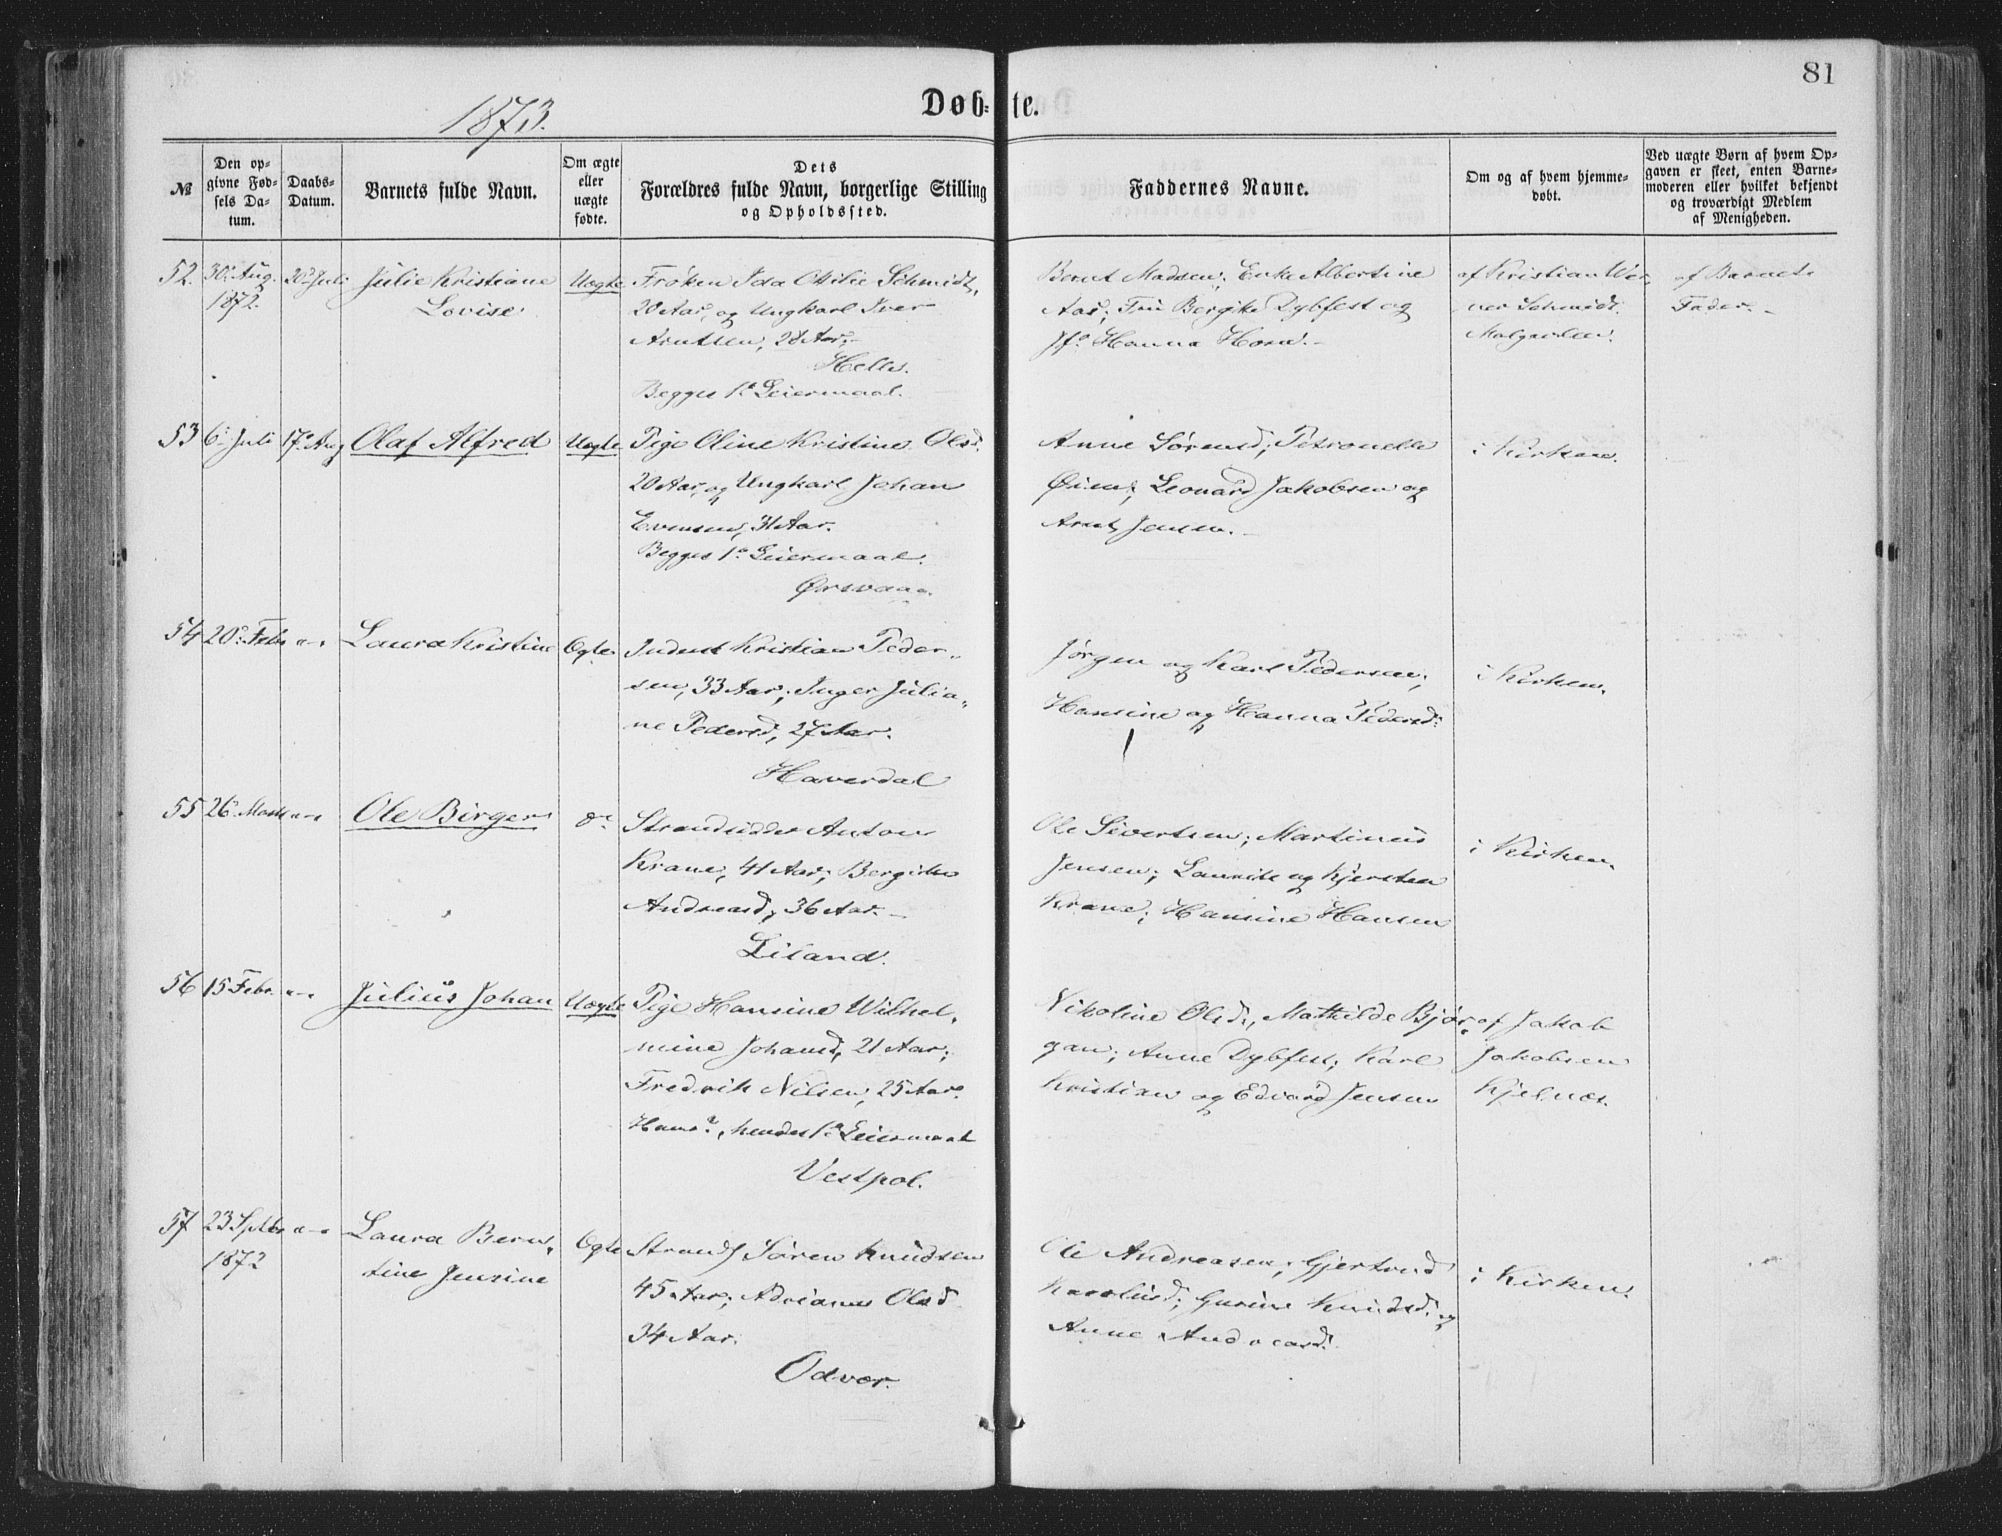 81
1873.
Døb= te.
№
Den op=
givne Fød=
sels Da=
tum.
Daabs=
Datum.
Barnets fulde Navn.
Om ægte
eller
uægte
fødte.
Dets
Forældres fulde Navn, borgerlige Stilling
og Opholdssted.
Faddernes Navne.
Om og af hvem hjemme=
døbt.
Ved uægte Børn af hvem Op=
gaven er skeet, enten Barne=
moderen eller hvilket bekjendt
og troværdigt Medlem
af Menigheden.
52.
30. Aug.
1872.
20 Juli
Julie Kristiane
Lovise
Uægte
Frøken Ida Ottilie Schmidt,
20 Aar, og Ungkarl Iver
Arntsen, 28 Aar.
Helle.
Begges 1ste Leiermaal.
Bernt Madsen; Enke Albertine
Aas; Fru Bergitte Dybfest og
Jfr. Hanna Horn.
af Kristian Wer
ner Schmidt
af Barnets
Fader.
53
6. Juli
17. Aug
Olaf Alfred
Uægte
Pige Oline Kristine Olsd.
20 Aar, og Ungkarl Johan
Evensen, 31 Aar.
Begges 1ste Leiermaal.
Ørsvaag.
Anne Sørensd; Petronelle
Øien; Leonard Jakobsen og
Arnt Jensen.
i Kirken.
54
20. Febr
Laura Kristine
Ægte
Inderst Kristian Peder-
sen, 33 Aar; Inger Julia-
ne Pedersd, 27 Aar.
Haverdal
Jørgen og Karl Pedersen;
Hansine og Hanna Pedersd.
i Kirken.
55
26. Marts
Ole Birger
do
Strandsidder Anton
Krane, 41 Aar; Bergitte
Andreasd, 36 Aar.
Liland.
Ole Sivertsen; Martinus
Jensen; Lauritz og Kjersten
Krane; Hansine Hansen
i Kirken.
56
15 Febr.
Julius Johan
Uægte
Pige Hansine Wilhel-
mine Johansd, 21 Aar;
Fredrik Nilsen, 25 Aar.
hendes 1ste Leiermaal
Vestpol.
Nikoline Olsd., Mathilde Bjør-
gan; Anne Dybfest; Karl
Kristian og Edvard Jensen
af Jakob
Jakobsen
Kjelnæs.
57
23 Septbr
1872
Laura Bern-
tine Jensine
Ægte
Strands Søren Knudsen
45 Aar; Adriane Olsd
34 Aar.
Odvær.
Ole Andreasen; Gjertrud
Karolusd; Gurine Knudsd. og
Anne Andreasd.
i Kirken.